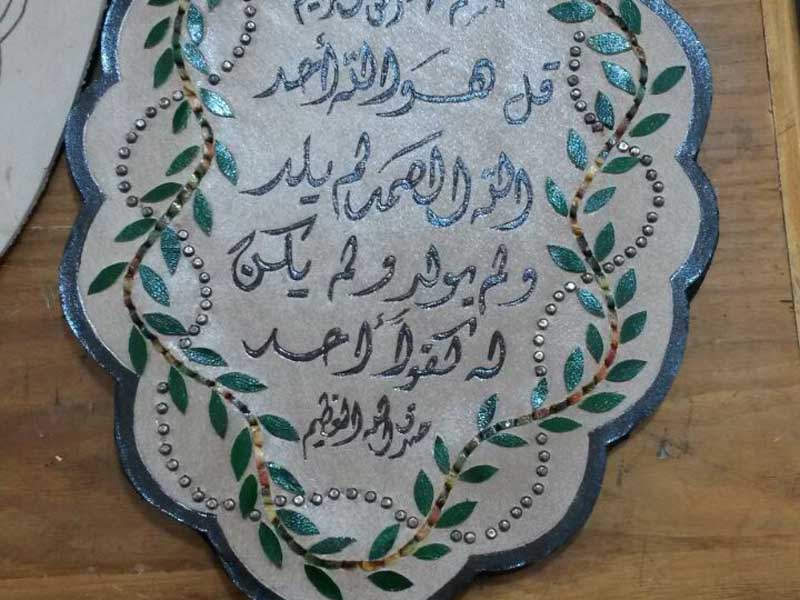 قل هو الله أحد
الله الصمد لم يلد
ولم يولد ولم يكن
له كفواً أحد
صدق الله العظيم